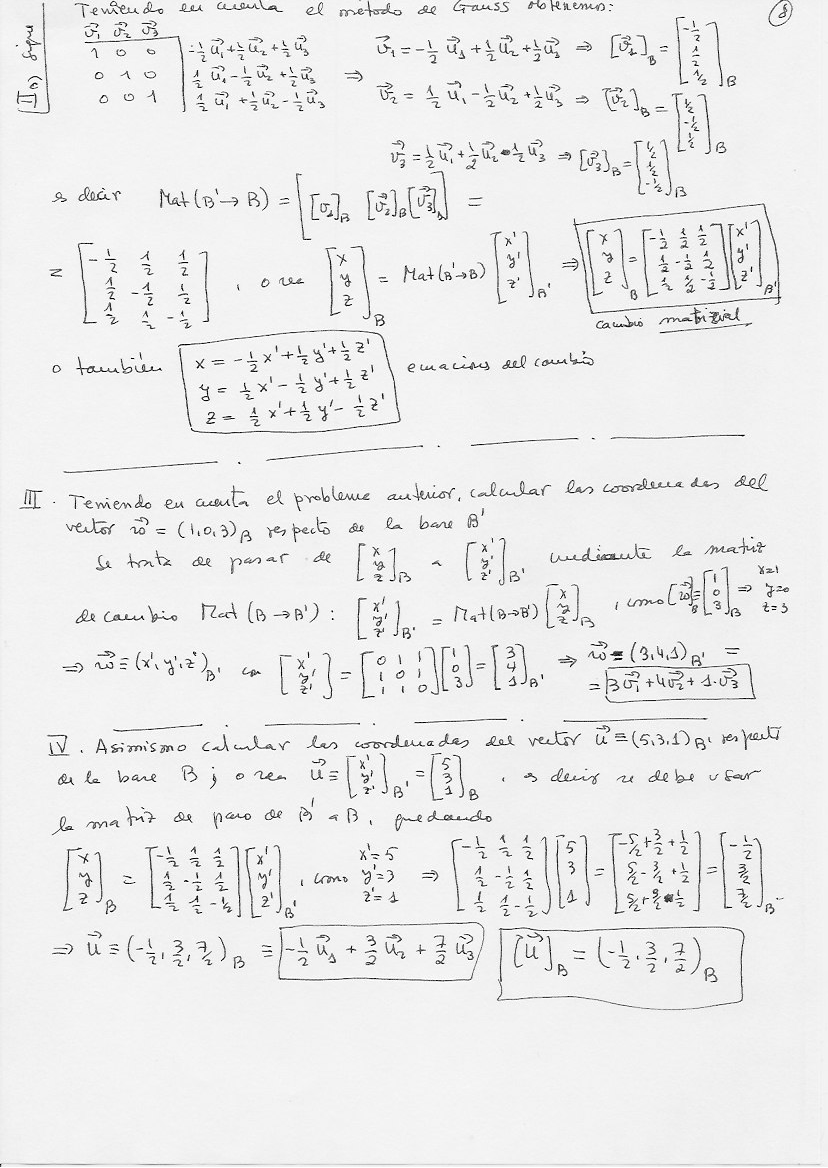 Teniendo en cuenta el método de Gauss obtenemos: 8
II a) sigue
v⃗₁ v⃗₂ v⃗₃
1 0 0 = -1/2 u⃗₁ + 1/2 u⃗₂ + 1/2 u⃗₃ ⇒ v⃗₁ = -1/2 u⃗₁ + 1/2 u⃗₂ + 1/2 u⃗₃ ⇒ [v⃗₁]_B = [-1/2 1/2 1/2]_B
0 1 0 1/2 u⃗₁ - 1/2 u⃗₂ + 1/2 u⃗₃ v⃗₂ = 1/2 u⃗₁ - 1/2 u⃗₂ + 1/2 u⃗₃ ⇒ [v⃗₂]_B = [1/2 -1/2 1/2]_B
0 0 1 1/2 u⃗₁ + 1/2 u⃗₂ - 1/2 u⃗₃ v⃗₃ = 1/2 u⃗₁ + 1/2 u⃗₂ - 1/2 u⃗₃ ⇒ [v⃗₃]_B = [1/2 1/2 -1/2]_B
es decir Mat(B'→B) = [[v⃗₁]_B [v⃗₂]_B [v⃗₃]_B] =
= [-1/2 1/2 1/2; 1/2 -1/2 1/2; 1/2 1/2 -1/2], o sea [x y z]_B = Mat(B'→B) [x' y' z']_B' ⇒ [x y z]_B = [-1/2 1/2 1/2; 1/2 -1/2 1/2; 1/2 1/2 -1/2] [x' y' z']_B'
cambio matricial
o también x = -1/2 x' + 1/2 y' + 1/2 z' ecuaciones del cambio
y = 1/2 x' - 1/2 y' + 1/2 z'
z = 1/2 x' + 1/2 y' - 1/2 z'
III. Teniendo en cuenta el problema anterior, calcular las coordenadas del
vector w⃗ = (1,0,3)_B respecto de la base B'
Se trata de pasar de [x y z]_B a [x' y' z']_B' mediante la matriz
de cambio Mat(B→B'): [x' y' z']_B' = Mat(B→B') [x y z]_B, como [w⃗]_B = [1 0 3]_B ⇒ x=1 y=0 z=3
⇒ w⃗ ≡ (x', y', z')_B' con [x' y' z'] = [0 1 1; 1 0 1; 1 1 0] [1 0 3] = [3 4 1]_B' ⇒ w⃗ = (3,4,1)_B' =
= 3v⃗₁ + 4v⃗₂ + 1·v⃗₃
IV. Asimismo calcular las coordenadas del vector u⃗ ≡ (5,3,1)_B' respecto
de la base B; o sea u⃗ ≡ [x' y' z']_B' = [5 3 1]_B, es decir se debe usar
la matriz de paso de B' a B, quedando
[x y z]_B = [-1/2 1/2 1/2; 1/2 -1/2 1/2; 1/2 1/2 -1/2] [x' y' z']_B', como x'=5 y'=3 z'=1 ⇒ [-1/2 1/2 1/2; 1/2 -1/2 1/2; 1/2 1/2 -1/2] [5 3 1] = [-5/2+3/2+1/2; 5/2-3/2+1/2; 5/2+3/2-1/2] = [-1/2 3/2 7/2]_B
⇒ u⃗ ≡ (-1/2, 3/2, 7/2)_B ≡ -1/2 u⃗₁ + 3/2 u⃗₂ + 7/2 u⃗₃ [u⃗]_B = (-1/2, 3/2, 7/2)_B